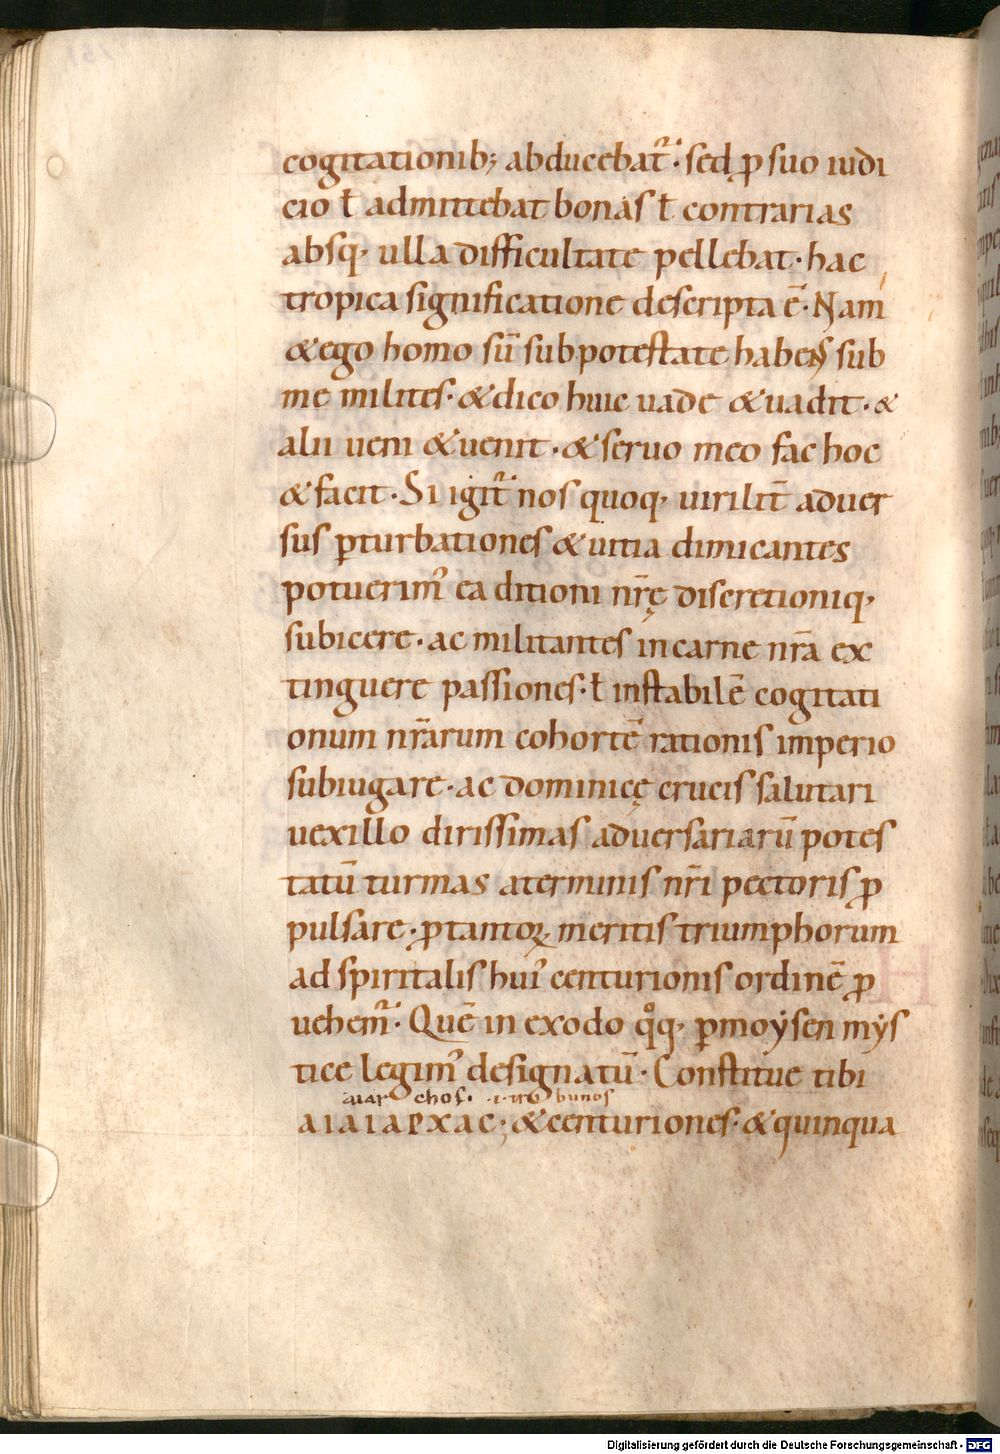 cogitationib; abducebat᷑· sed ꝓ suo iudi
cio ł admittebat bonas ł contrarias
absq· ulla difficultate pellebat· hac
tropica significatione descripta ē· Nam
& ego homo sū sub potestate habens sub
me milites· & dico huic uade & uadit· &
alii ueni & uenit· & seruo meo fac hoc
& facit· Si igit᷑ nos quoq· uirilit̄ aduer
sus ꝑturbationes & uitia dimicantes
potuerim᾽ ea ditioni nr̄ę discretioniq·
subicere· ac militantes in carne nr̄a ex
tinguere passiones· ł instabilē cogitati
onum nr̄arum cohortē rationis imperio
subiugare· ac dominicę crucis salutari
uexillo dirissimas aduersariarū potes
tatū turmas a terminis nr̄i pectoris ꝓ
pulsare· ꝓ tantoꝝ meritis triumphorum
ad spiritalis hui᾽ centurionis ordinē ꝓ
uehem᷑· Quē in exodo qͦq· ꝑ moẏsen mẏs
tice legim᾽ designatū· Constitue tibi
aiar chos· ·i· tribunos
aiaiapxac; & centuriones· & quinqua
Digitalisierung gefördert durch die Deutsche Forschungsgemeinschaft - DFG